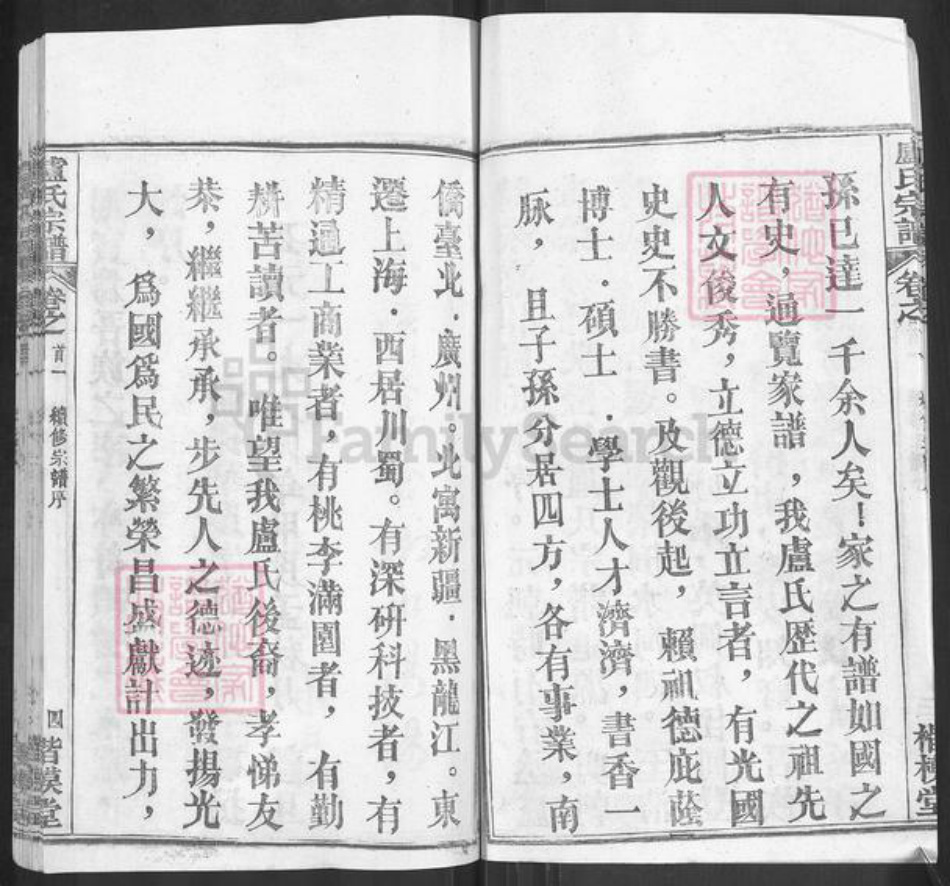 盧氏宗譜
卷之
楷模堂
孫已達一千余人矣！家之有譜如國之
有史，遍覽家譜，我盧氏歷代之祖先
人文俊秀，立德立功立言者，有光國
史史不勝書。及觀後起，賴祖德庇蔭
博士．碩士．學士人才濟濟，書香一
脉，且子孫分居四方，各有事業，南
僑臺北．廣州。北寓新疆．黑龍江。東
遷上海．西居川蜀。有深研科技者，有
精通工商業者，有桃李滿園者，有勤
耕苦讀者。唯望我盧氏後裔，孝悌友
恭，繼繼承承，步先人之德迹，發揚光
大，爲國爲民之繁榮昌盛獻計出力，
盧氏宗譜
卷之首一
續修宗譜序
四
楷模堂
FamilySearch